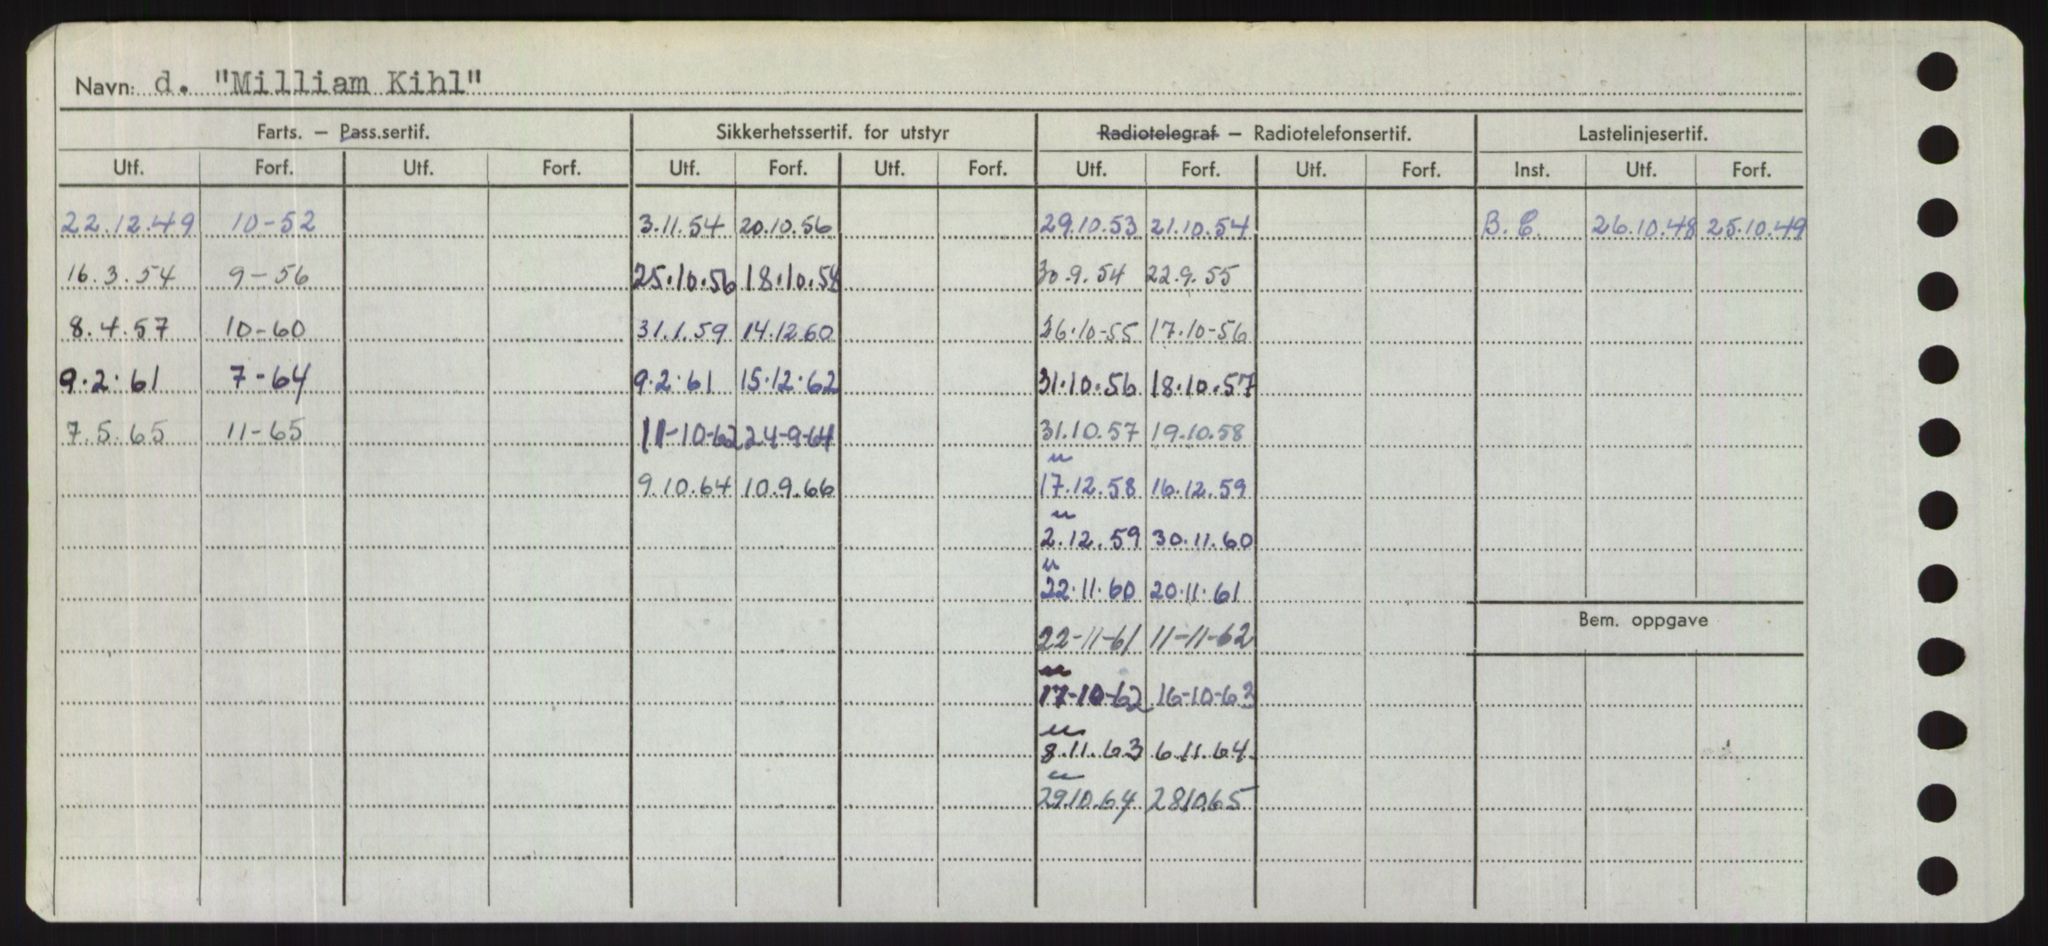 Navn: d. "Milliam Kihl"
Farts. – Pass.sertif. Sikkerhetssertif. for utstyr Radiotelegraf – Radiotelefonsertif. Lastelinjesertif.
Utf. Forf. Utf. Forf. Utf. Forf. Utf. Forf. Utf. Forf. Utf. Forf. Inst. Utf. Forf.
22.12.49 10-52 3.11.54 20.10.56 29.10.53 21.10.54 B.C. 26.10.48 25.10.49
16.3.54 9-56 25.10.56 18.10.58 30.9.54 22.9.55
8.4.57 10-60 31.1.59 14.12.60 26.10-55 17.10-56
9.2.61 7-64 9.2.61 15.12.62 31.10.56 18.10.57
7.5.65 11-65 11-10-62 24-9-64 31.10.57 19.10.58
9.10.64 10.9.66 17.12.58 16.12.59
2.12.59 30.11.60
22.11.60 20.11.61
22-11-61 11-11-62
Bem. oppgave
17-10-62 16-10-63
8.11.63 6.11.64
29.10.64 28.10.65